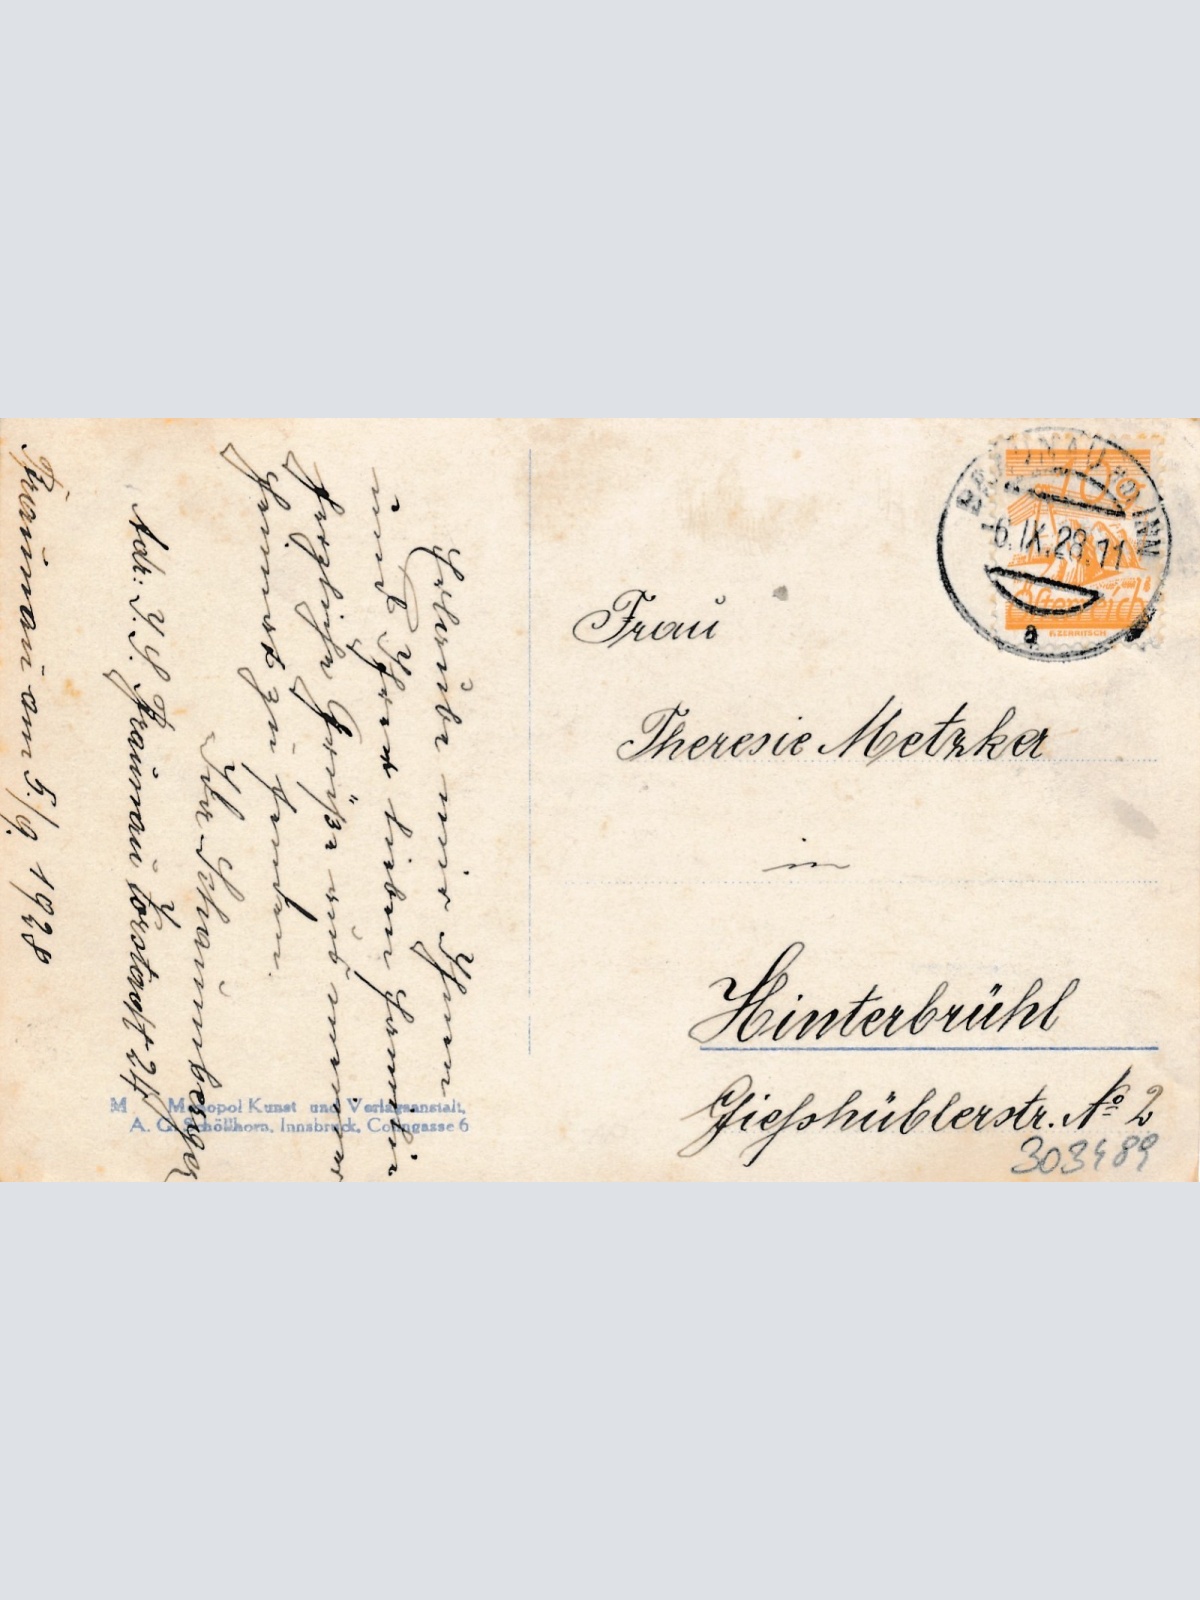 Braunau am 5./9. 1928
Erlaube mir Ihnen
und Ihrer lieben Familie
herzliche Grüße aus meiner
Heimat zu senden.
Ihr Schaumberger
Adr: J. S. Braunau Vorstadt 27
M Monopol Kunst und Verlagsanstalt,
A. G. Schöllhorn, Innsbruck, Colingasse 6
BRAUNAU am INN
-6.IX.28.11
a
10g
Österreich
Frau
Theresie Metzker
in
Hinterbrühl
Gießhüblerstr. No 2
303489